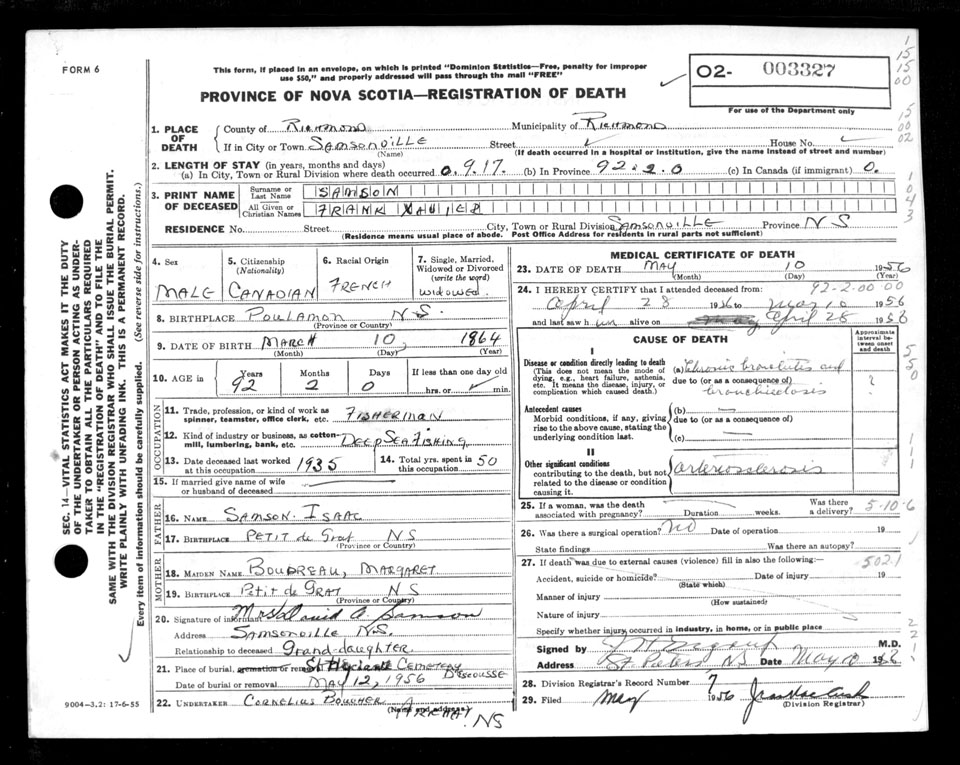 FORM 6
This form, if placed in an envelope, on which is printed "Dominion Statistics—Free, penalty for improper
use $50," and properly addressed will pass through the mail "FREE"
PROVINCE OF NOVA SCOTIA—REGISTRATION OF DEATH
O2- 003327
For use of the Department only
1. PLACE OF DEATH
County of RICHMOND Municipality of RICHMOND
If in City or Town SAMSONVILLE Street House No.
(Name) (If death occurred in a hospital or institution, give the name instead of street and number)
2. LENGTH OF STAY (in years, months and days)
(a) In City, Town or Rural Division where death occurred 0.9.17. (b) In Province 92.2.0 (c) In Canada (if immigrant) 0.
3. PRINT NAME OF DECEASED
Surname or Last Name SAMSON
All Given or Christian Names FRANK XAVIER
RESIDENCE No. Street City, Town or Rural Division SAMSONVILLE Province NS
(Residence means usual place of abode. Post Office Address for residents in rural parts not sufficient)
4. Sex MALE
5. Citizenship (Nationality) CANADIAN
6. Racial Origin FRENCH
7. Single, Married, Widowed or Divorced (write the word) WIDOWED
8. BIRTHPLACE POULAMON N.S.
(Province or Country)
9. DATE OF BIRTH MARCH 10, 1864
(Month) (Day) (Year)
10. AGE in Years Months Days If less than one day old
92 2 0 hrs. or min.
OCCUPATION
11. Trade, profession, or kind of work as spinner, teamster, office clerk, etc. FISHERMAN
12. Kind of industry or business, as cotton-mill, lumbering, bank, etc. DEEP SEA FISHING
13. Date deceased last worked at this occupation 1935
14. Total yrs. spent in this occupation 50
15. If married give name of wife or husband of deceased
FATHER
16. NAME SAMSON. ISAAC
17. BIRTHPLACE PETIT de GRAT NS
(Province or Country)
MOTHER
18. MAIDEN NAME BOUDREAU, MARGARET
19. BIRTHPLACE PETIT de GRAT NS
(Province or Country)
20. Signature of informant Mrs David A. Samson
Address SAMSONVILLE N.S.
Relationship to deceased Grand-daughter
21. Place of burial, cremation or removal St Hyacinth CEMETERY DISCOUSSE
Date of burial or removal MAY 12, 1956
22. UNDERTAKER CORNELIUS BOUCHER ARICHAT, NS
(Name and address)
9004-3,2: 17-6-55
MEDICAL CERTIFICATE OF DEATH
23. DATE OF DEATH MAY 10 1956
(Month) (Day) (Year)
24. I HEREBY CERTIFY that I attended deceased from: 92-2-00 00 00
April 28 1956 to May 10 1956
and last saw him alive on April 28 1956
CAUSE OF DEATH
Approximate interval between onset and death
I
Disease or condition directly leading to death
(This does not mean the mode of dying, e.g., heart failure, asthenia, etc. It means the disease, injury, or complication which caused death.)
(a) Chronic bronchitis and
due to (or as a consequence of)
bronchiectosis ?
Antecedent causes
Morbid conditions, if any, giving rise to the above cause, stating the underlying condition last.
(b) —
due to (or as a consequence of)
(c) —
II
Other significant conditions
contributing to the death, but not related to the disease or condition causing it.
arteriosclerosis
25. If a woman, was the death associated with pregnancy? Duration weeks. Was there a delivery?
5-10-6
26. Was there a surgical operation? NO Date of operation 19
State findings Was there an autopsy?
27. If death was due to external causes (violence) fill in also the following:
502.1
Accident, suicide or homicide? Date of injury 19
(State which)
Manner of injury
(How sustained)
Nature of injury
Specify whether injury occurred in industry, in home, or in public place
Signed by M.D.
Address St. Peters NS Date May 10 1956
28. Division Registrar's Record Number 7
29. Filed May 1956
(Division Registrar)
SEC. 14—VITAL STATISTICS ACT MAKES IT THE DUTY
OF THE UNDERTAKER OR PERSON ACTING AS UNDER-
TAKER TO OBTAIN ALL THE PARTICULARS REQUIRED
IN THE "REGISTRATION OF DEATH" AND TO FILE THE
SAME WITH THE DIVISION REGISTRAR WHO SHALL ISSUE THE BURIAL PERMIT.
WRITE PLAINLY WITH UNFADING INK. THIS IS A PERMANENT RECORD.
Every item of information should be carefully supplied. (See reverse side for instructions.)